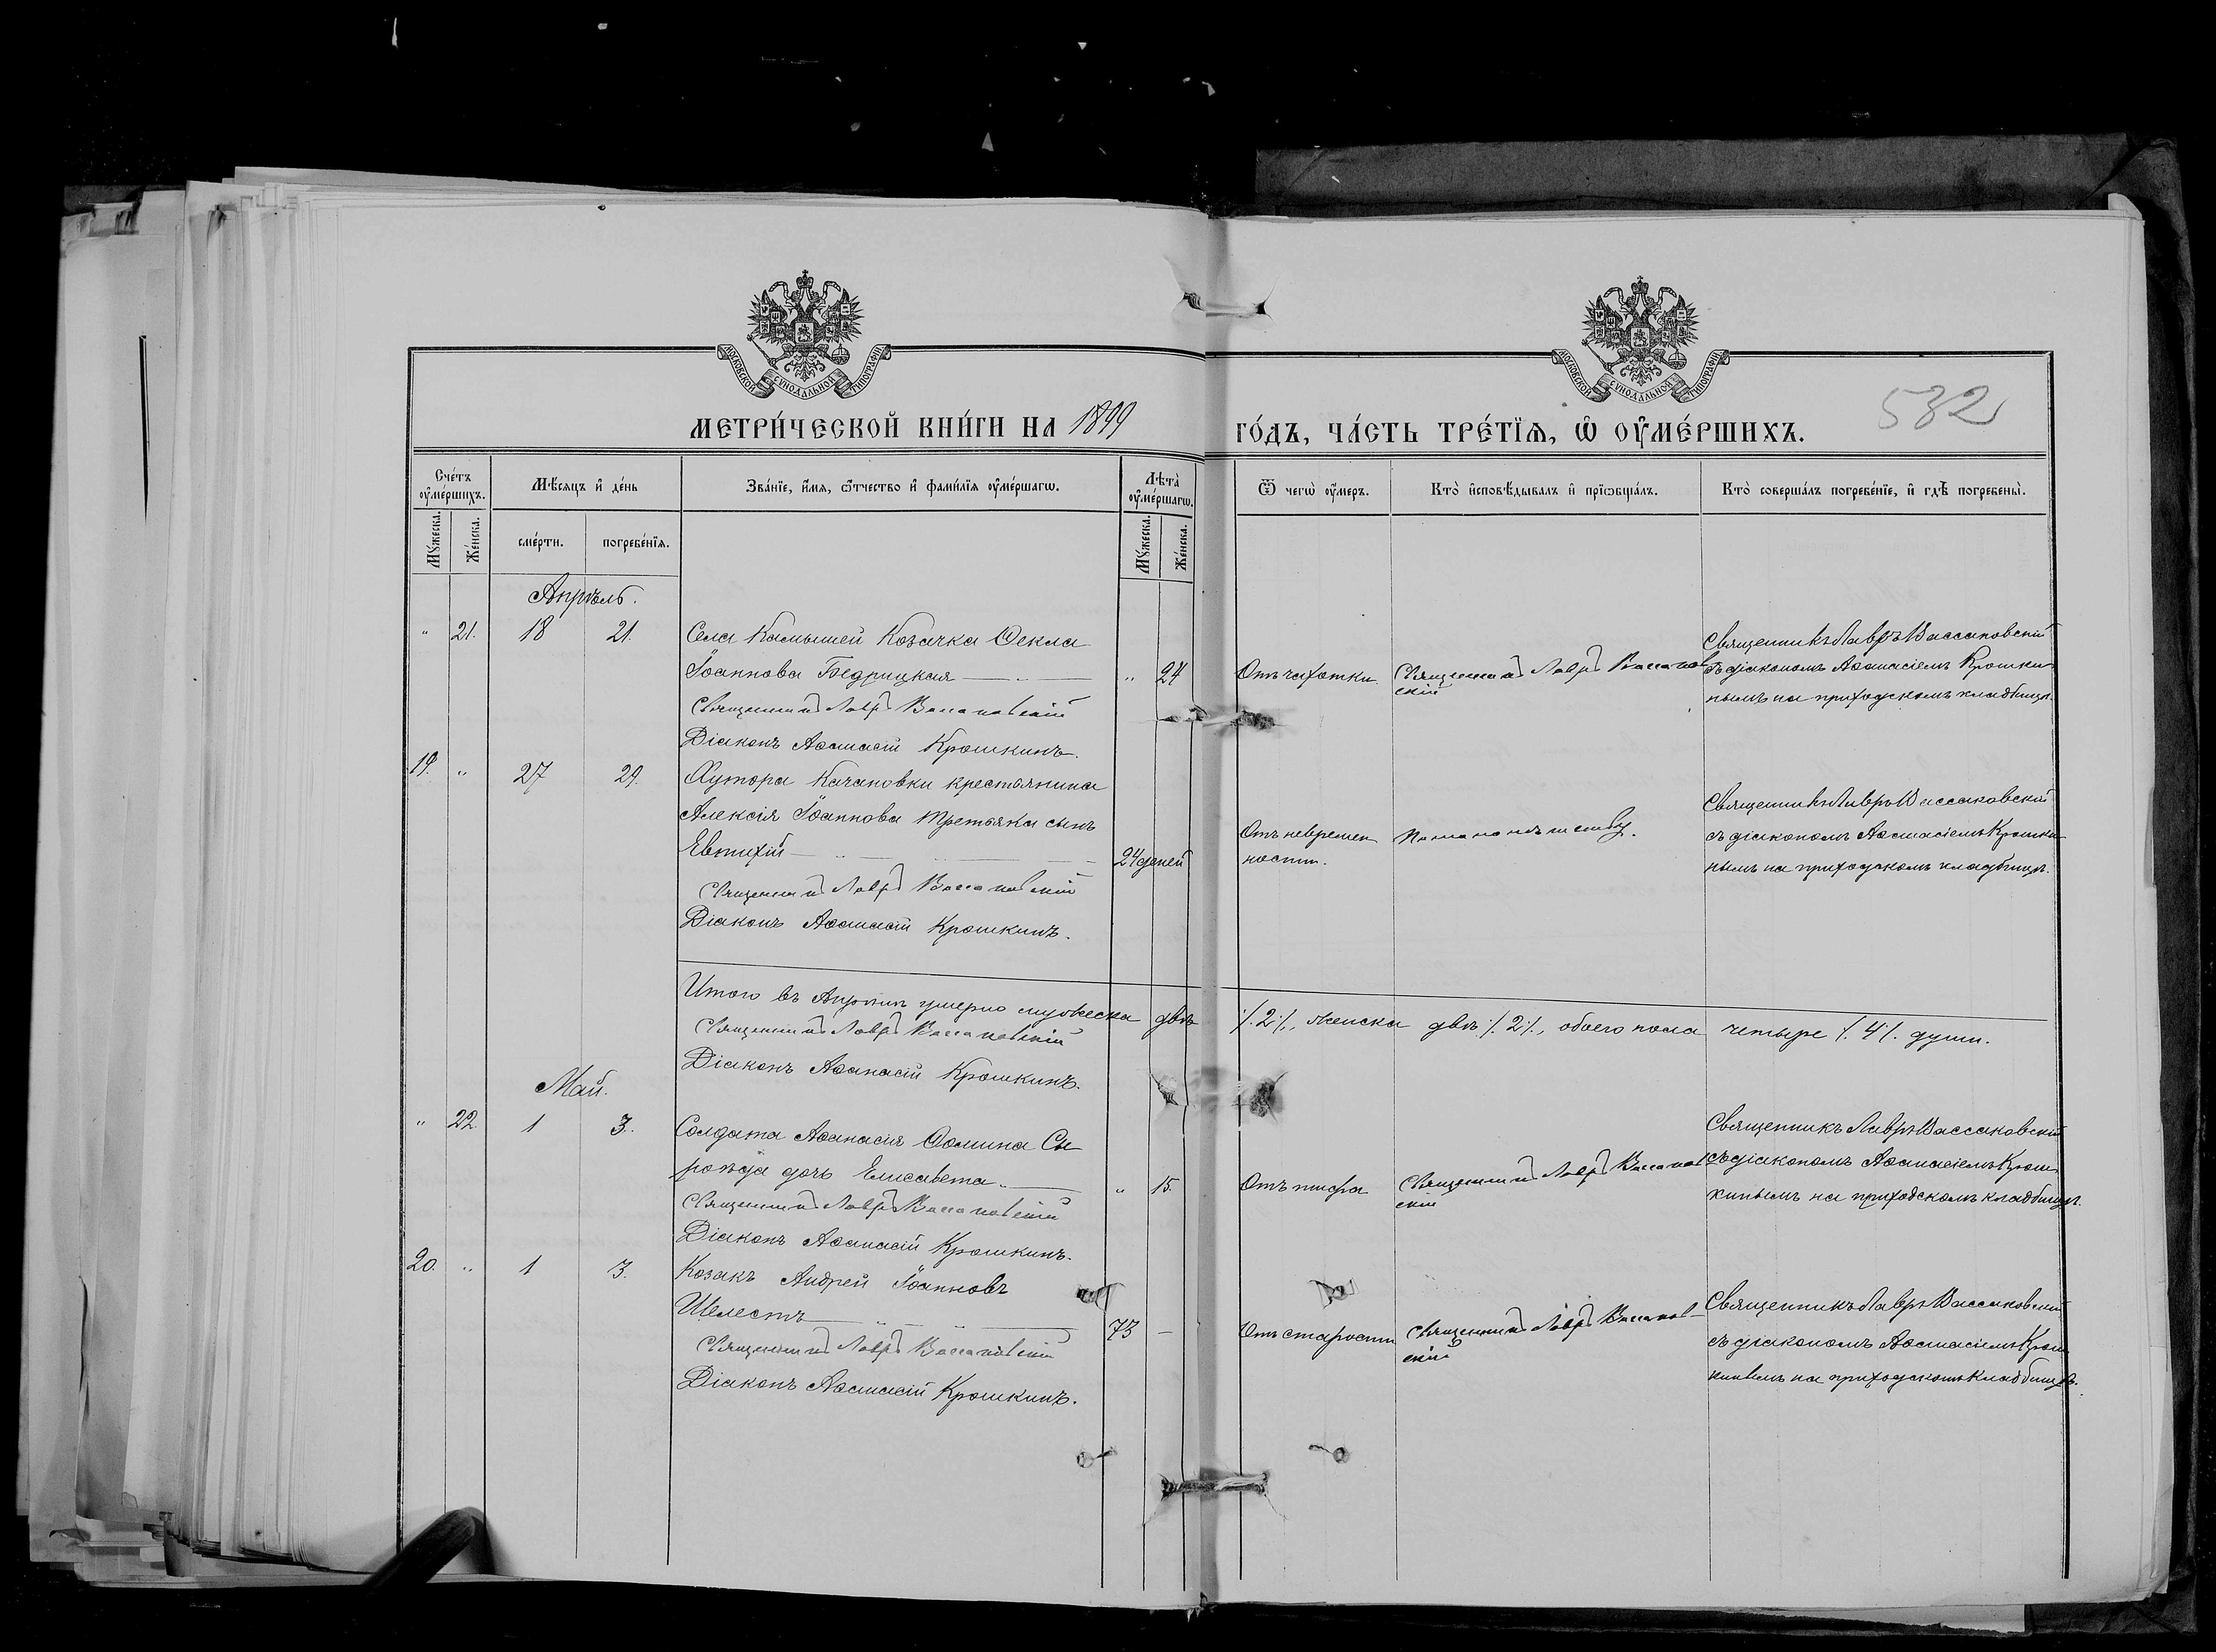 МОСКОВСКОЙ СУНОДАЛЬНОЙ ТИПОГРАФІИ
МОСКОВСКОЙ СУНОДАЛЬНОЙ ТИПОГРАФІИ
582
МЕТРИ́ЧЕСКОЙ КНИ́ГИ НА 1899 ГО́ДЪ, ЧА́СТЬ ТРЕ́ТЇѦ, Ѡ ОУ҆МЕ́РШИХЪ.
Сче́тъ оу҆ме́ршихъ.
Мѣ́сяцъ и҆ де́нь
Зва́нїе, и҆́мѧ, ѻ҆́тчество и҆ фами́лїѧ оу҆ме́ршагѡ.
Лѣта̀ оу҆ме́ршагѡ.
Ѿ чегѡ̀ оу҆́меръ.
Кто̀ и҆сповѣ́дывалъ и҆ прїѡбща́лъ.
Кто̀ соверша́лъ погребе́нїе, и҆ гдѣ̀ погребены̀.
Мꙋ́жеска.
Же́нска.
сме́рти.
погребе́нїѧ.
Мꙋ́жеска.
Же́нска.
Апрѣль.
" 21. 18 21. Села Камышей Козачка Ѳекла
Іоаннова Бедрицкая " 24
Священникъ Лавръ Вассаковскій
Діаконъ Аѳанасій Крошкинъ.
Отъ чахотки.
Священникъ Лавръ Вассаков
скій
Священникъ Лавръ Вассаковскій
съ діакономъ Аѳанасіемъ Крошки
нымъ на приходскомъ кладбищѣ.
19. " 27 29. Хутора Качановки крестьянина
Алексія Іоаннова Третьяка сынъ
Евтихій 24 дней
Священникъ Лавръ Вассаковскій
Діаконъ Аѳанасій Крошкинъ.
Отъ неврѣмен
ности.
Священникъ Лавръ Вассаковскій
съ діакономъ Аѳанасіемъ Крошки
нымъ на приходскомъ кладбищѣ.
Итого въ Апрѣлѣ умерло мужеска двѣ /.2/., женска двѣ /.2/., обоего пола четыре /.4/. души.
Священникъ Лавръ Вассаковскій
Діаконъ Аѳанасій Крошкинъ.
Май.
" 22. 1 3. Солдата Аѳанасія Ѳомина Сы
роѣда дочь Елисавета " 15.
Священникъ Лавръ Вассаковскій
Діаконъ Аѳанасій Крошкинъ.
Отъ тифа
Священникъ Лавръ Вассаков
скій
Священникъ Лавръ Вассаковскій
съ діакономъ Аѳанасіемъ Крош
кинымъ на приходскомъ кладбищѣ.
20. " 1 3. Козакъ Андрей Іоанновъ
Шелестъ 73 —
Священникъ Лавръ Вассаковскій
Діаконъ Аѳанасій Крошкинъ.
Отъ старости
Священникъ Лавръ Вассаков
скій
Священникъ Лавръ Вассаковскій
съ діакономъ Аѳанасіемъ Крош
кинымъ на приходскомъ кладбищѣ.